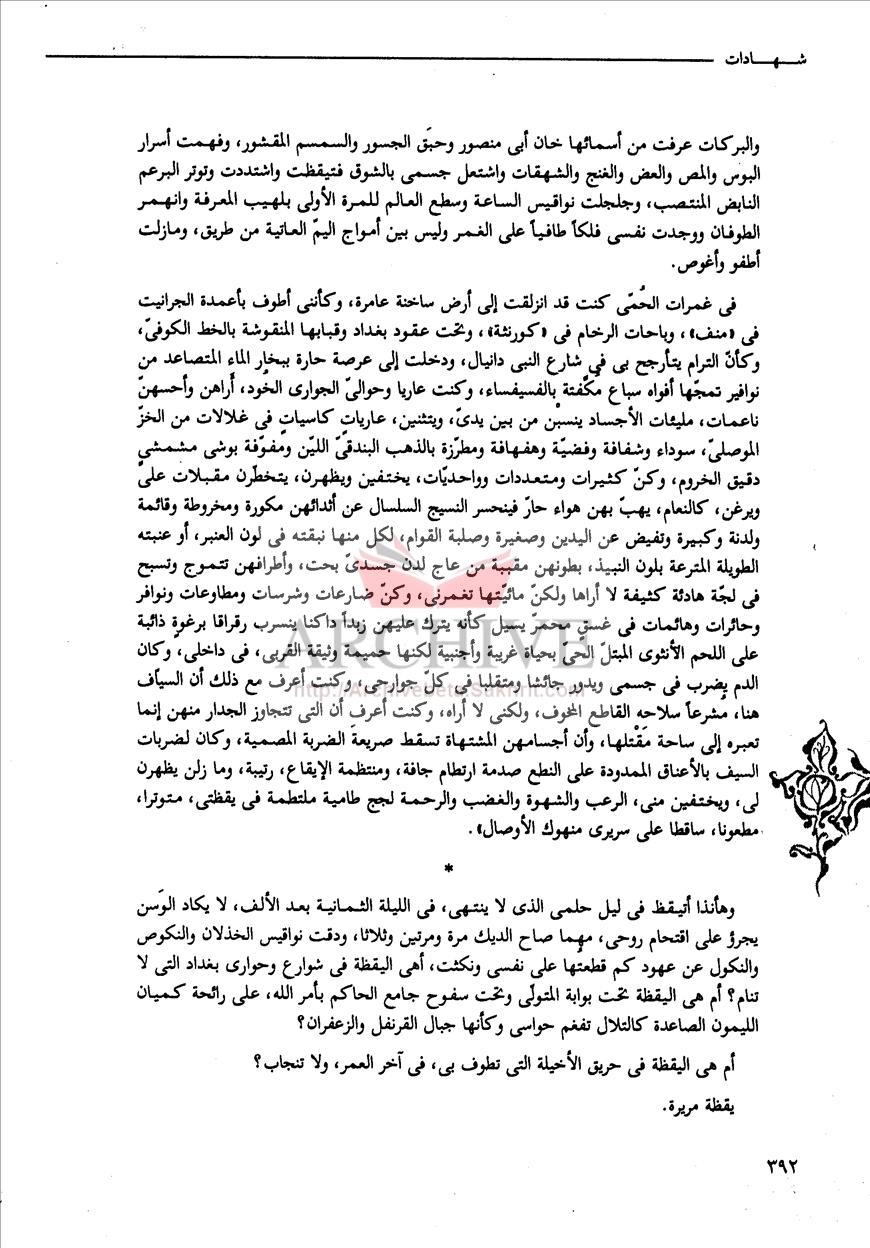 شـــهـــادات
والبركات عرفت من أسمائها خان أبى منصور وحبَق الجسور والسمسم المقشور، وفهمت أسرار
البوس والمص والعض والغنج والشهقات واشتعل جسمى بالشوق فتيقظت واشتددت وتوتر البرعم
النابض المنتصب، وجلجلت نواقيس الساعة وسطع العالم للمرة الأولى بلهيب المعرفة وانهمر
الطوفان ووجدت نفسى فلكاً طافياً على الغمر وليس بين أمواج اليمّ العاتية من طريق، ومازلت
أطفو وأغوص.
فى غمرات الحُمّى كنت قد انزلقت إلى أرض ساخنة عامرة، وكأننى أطوف بأعمدة الجرانيت
فى «منف»، وباحات الرخام فى «كورنثة»، وتحت عقود بغداد وقبابها المنقوشة بالخط الكوفىّ،
وكأنّ الترام يتأرجح بى فى شارع النبى دانيال، ودخلت إلى عرصة حارة ببخار الماء المتصاعد من
نوافير تمجّها أفواه سباع مكُفّتة بالفسيفساء، وكنت عاريا وحوالىّ الجوارى الخُود، أراهن وأحسهنّ
ناعمات، مليئات الأجساد ينسبْن من بين يدىّ، ويتثنين، عاريات كاسيات فى غلالات من الخزّ
الموصلىّ، سوداء وشفافة وفضيّة وهفهافة ومطرّزة بالذهب البندقىّ الليّن ومفوّفة بوشى مشمشى
دقيق الخروم، وكنّ كثيرات ومتعددات وواحديّات، يختفين ويظهرن، يتخطّرن مقبلات علىّ
ويرغن، كالنعام، يهبّ بهن هواء حارّ فينحسر النسيج السلسال عن أثدائهن مكورة ومخروطة وقائمة
ولدنة وكبيرة وتفيض عن اليدين وصغيرة وصلبة القوام، لكل منها نبقته فى لون العنبر، أو عنبته
الطويلة المترعة بلون النبيذ، بطونهن مقببة من عاج لدن جسدىّ بحت، وأطرافهن تتموج وتسبح
فى لجّة هادئة كثيفة لا أراها ولكنّ مائيّتها تغمرنى، وكنّ ضارعات وشرسات ومطاوعات ونوافر
وحائرات وهائمات فى غسق محمرّ يسيل كأنه يترك عليهن زبداً داكنا ينسرب رقراقا برغوة ذائبة
على اللحم الأنثوى المبتلّ الحىّ بحياة غريبة وأجنبية لكنها حميمة وثيقة القربى، فى داخلى، وكان
الدم يضرب فى جسمى ويدور جائشا ومتقلبا فى كلّ جوارحى، وكنت أعرف مع ذلك أن السيّاف
هنا، مشرعاً سلاحه القاطع المخوف، ولكنى لا أراه، وكنت أعرف أن التى تتجاوز الجدار منهن إنما
تعبره إلى ساحة مَقْتلها، وأن أجسامهن المشتهاة تسقط صريعة الضربة المصمية، وكان لضربات
السيف بالأعناق الممدودة على النطع صدمة ارتطام جافة، ومنتظمة الإيقاع، رتيبة، وما زلن يظهرن
لى، ويختفين منى، الرعب والشهوة والغضب والرحمة لجج طامية ملتطمة فى يقظتى، متوترا،
مطعونا، ساقطا على سريرى منهوك الأوصال».
*
وهأنذا أتيقظ فى ليل حلمى الذى لا ينتهى، فى الليلة الثمانية بعد الألف، لا يكاد الوَسن
يجرؤ على اقتحام روحى، مهما صاح الديك مرة ومرتين وثلاثا، ودقت نواقيس الخذلان والنكوص
والنكول عن عهود كم قطعتها على نفسى ونكثت، أهى اليقظة فى شوارع وحوارى بغداد التى لا
تنام؟ أم هى اليقظة تحت بوابة المتولّى وتحت سفوح جامع الحاكم بأمر الله، على رائحة كميان
الليمون الصاعدة كالتلال تفغم حواسى وكأنها جبال القرنفل والزعفران؟
أم هى اليقظة فى حريق الأخيلة التى تطوف بى، فى آخر العمر، ولا تنجاب؟
يقظة مريرة.
٣٩٢
ARCHIVE
http://Archivebeta.Sakhrit.com